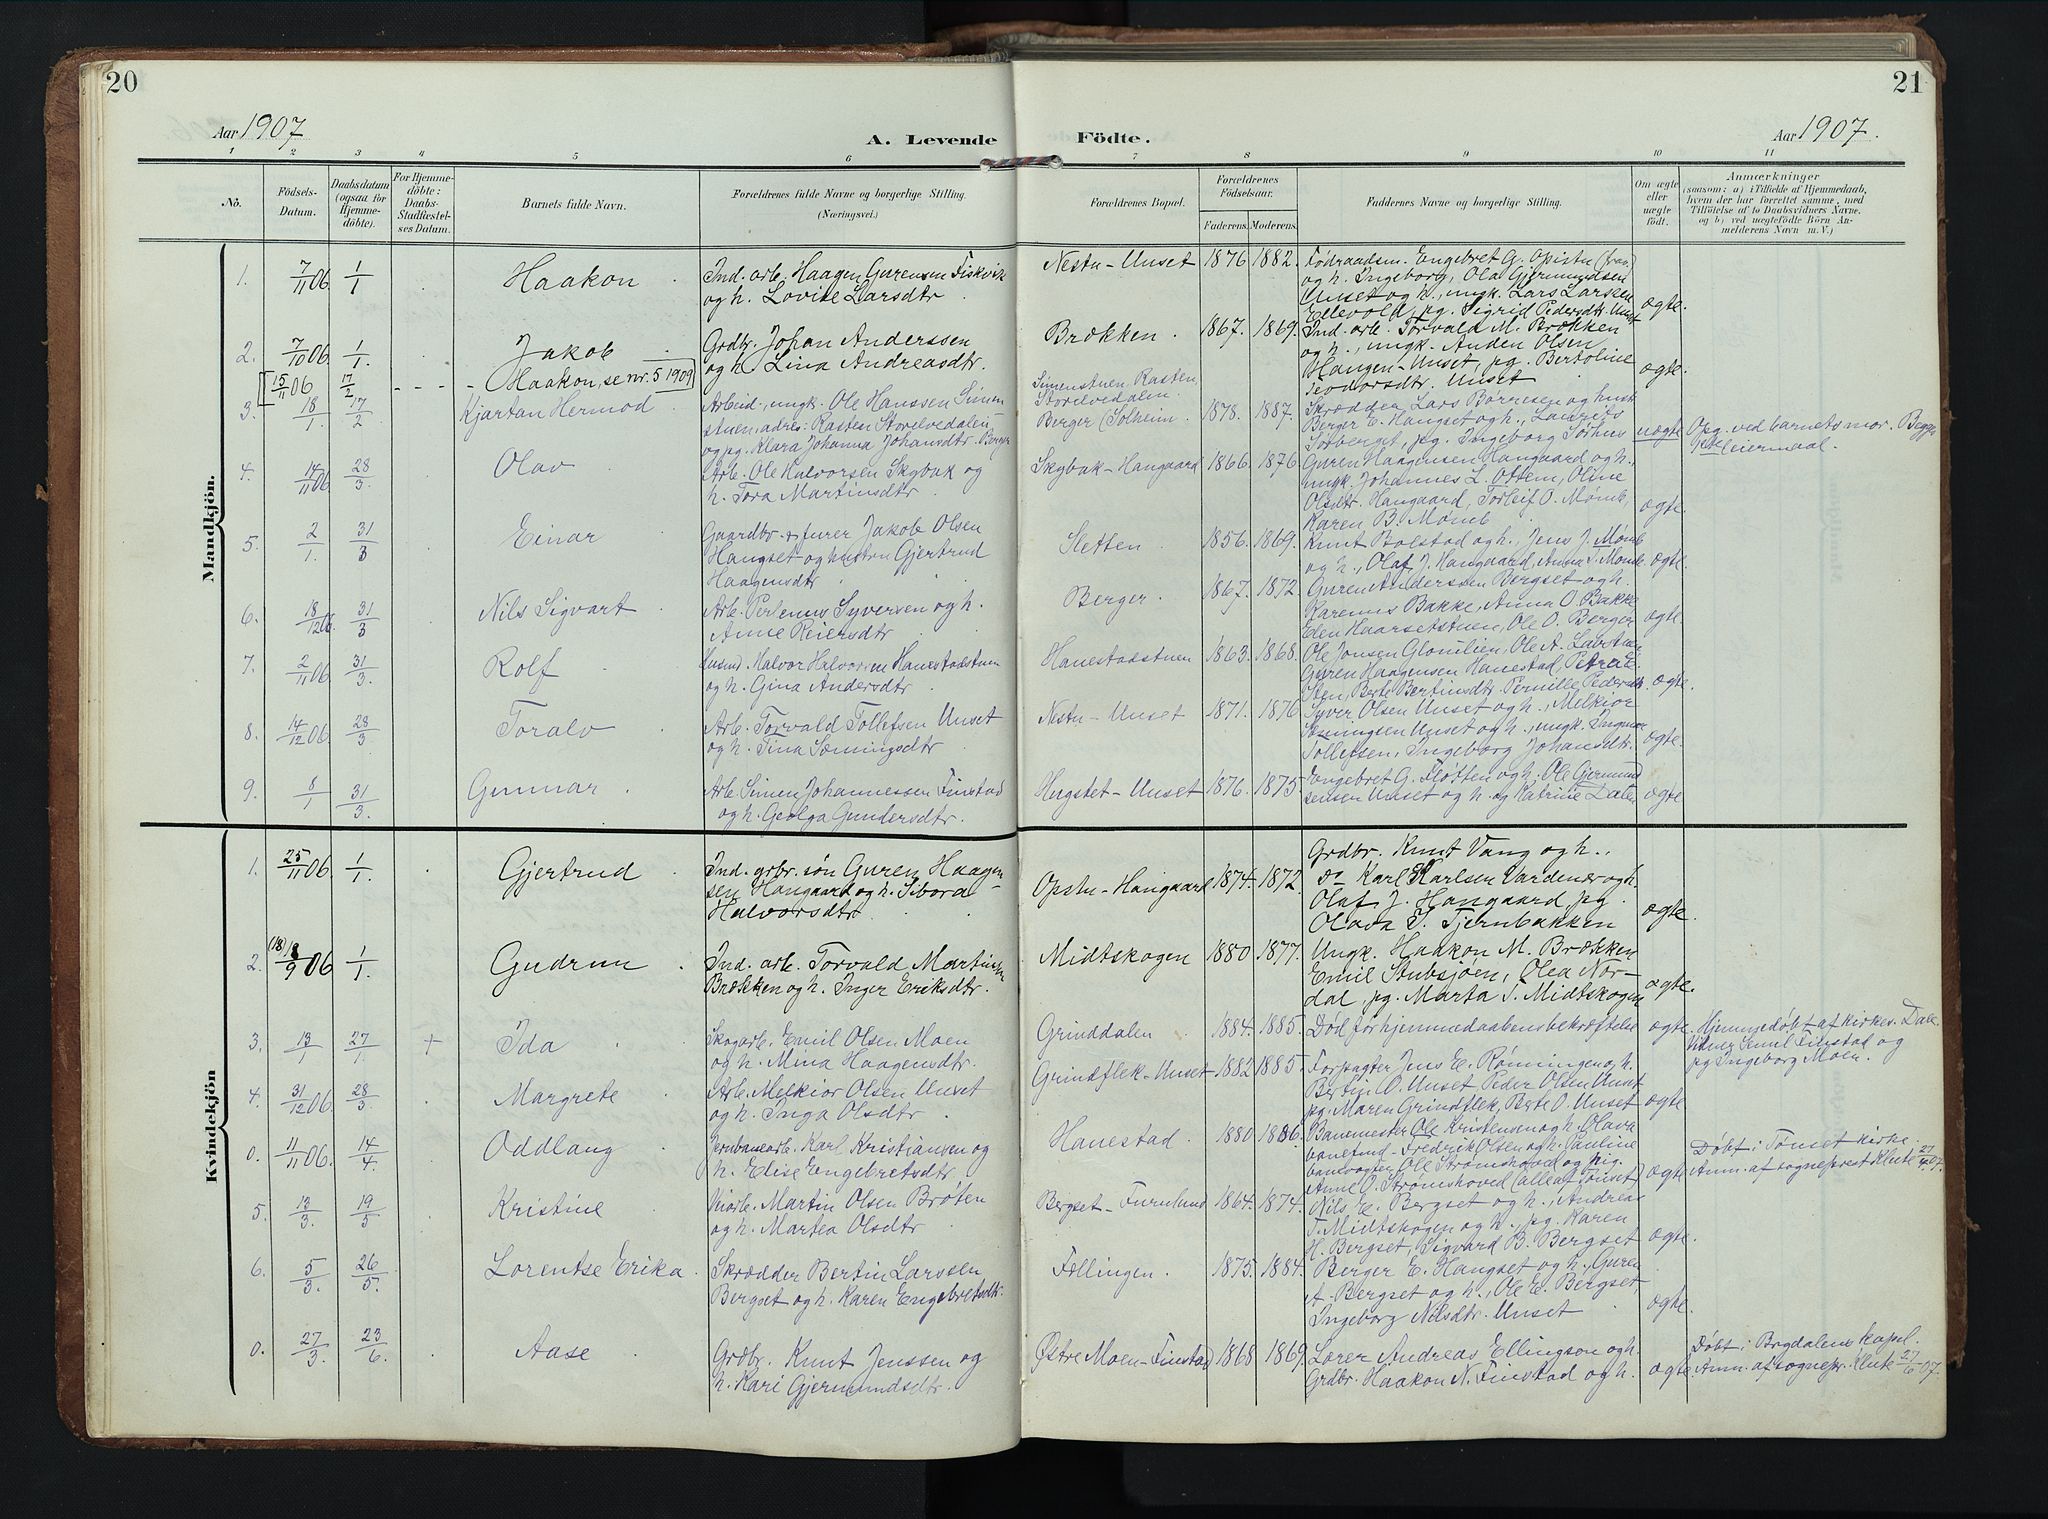 20
Aar 1907
A. Levende
1 2 3 4 5 6
No. Födsels-Datum. Daabsdatum (ogsaa for Hjemmedöbte). For Hjemmedöbte: Daabs-Stadfæstelses Datum. Barnets fulde Navn. Forældrenes fulde Navne og borgerlige Stilling. (Næringsvei.)
Mandkjön.
1. 7/11 06 1/1 Haakon Ind. arb. Haagen Gurensen Fiskvik
og h. Lovise Larsdtr
2. 7/10 06 1/1 Jakob Grdbr. Johan Anderssen
og h Lina Andreasdtr.
15/11 06 17/2 - - - - Haakon, se nr. 5 1909
3. 18/1. 17/2 Kjartan Hermod Arbeid., ungk. Ole Hanssen Simen
stuen, adres: Rasten Storelvedalen
og pg. Klara Johanna Johansdtr. Berger
4. 14/11 06 28/3. Olav Arb. Ole Halvorsen Skybak og
h. Tora Martinsdtr
5. 2/1. 31/3 Einar Gaardbr. & furer Jakob Olsen
Hangset og hustru Gjertrud
Haagensdtr
6. 18/12 06. 31/3 Nils Sigvart Arb. Perlenus Syversen og h.
Anne Reiersdtr
7. 2/11 06 31/3. Rolf Husmd. Halvor Halvorsen Hanestadstuen
og h. Gina Andersdtr
8. 14/12 06 28/3 Toralv Arb. Torvald Tollefsen Unset
og h. Tina Sæmingsdtr
9. 8/1 31/3. Gunnar Arb. Simen Johannessen Finstad
og h. Georga Gundersdtr.
Kvindekjön
1. 25/11 06 1/1. Gjertrud Ind. grbr. søn Guren Haagen
sen Hangaard og h. Sivora
Halvorsdtr
2. (18) 18/9 06 1/1. Gudrun Ind. arb. Torvald Martinsen
Brækken og h. Inger Eriksdtr.
3. 13/1 27/1. + Ida Skogarb. Emil Olsen Moen
og h. Mina Haagensdtr.
4. 31/12 06 28/3 Margrete Arb. Melkior Olsen Unset
og h. Inga Olsdtr
0. 11/11 06. 14/4. Oddlaug Jernbanearb. Karl Kristiansen og
h. Elise Engebretsdtr.
5. 13/3. 19/5 Kristine Martin Olsen Bröten
og h. Martea Olsdtr
6. 5/3. 26/5. Lorentse Erika Skrædder Bertin Larssen
Bergset og h. Karen Engebretsdtr.
0. 27/3. 23/6. Aase Grdbr. Knut Jenssen og
h. Kari Gjermundsdtr.
21
Födte.
Aar 1907.
7 8 9 10 11
Forældrenes Bopæl. Forældrenes Födselsaar. Faderens. Moderens. Faddernes Navne og borgerlige Stilling. Om ægte eller uægte födt. Anmærkninger
(saasom: a) i Tilfælde af Hjemmedaab, hvem der har forrettet samme, med Tilföielse af to Daabsvidners Navne, og b) ved uægtefödte Börn Anmelderens Navn m. V.)
Nestu-Unset 1876 1882. Födraadsm. Engebret G. Opistu (frav.)
og h. Ingeborg, Ola Gjermundsen
Unset og h., ungk. Lars Larsen
Ellevold, pg. Sigrid Pedersdtr Unset ægte.
Brækken. 1867. 1869. Ind. arb. Torvald M. Brækken
og h., ungk. Anden Olsen
Hangen-Unset, pg. Bertoline
Teodorsdtr. Unset ægte.
Simenstuen, Rasten,
Storelvedalen.
Berger (Solheim 1878. 1887. Skrædder Lars Børresen og hust
Berger E. Hangset og h., Laurits
Søtberget, pg. Ingeborg Sørhus uægte Opg. ved barnets mor. Begges
1ste leiermaal.
Skybak-Hangaard 1866. 1876. Guren Haagensen Hangaard og h.,
ungk. Johannes L. Ottem, Oline
Olsdtr. Hangaard, Torleif O. Mømb,
Karen B. Mømb ægte.
Sletten 1856. 1869. Knut Bolstad og h., Jens J. Mømb
og h., Olaf J. Hangaard, Anna S. Mømb ægte.
Berger. 1867. 1872. Guren Anderssen Bergset og h.
Karenus Bakke, Anna O. Bakke
Elen Haarsetstuen, Ole O. Berger ægte.
Hanestadstuen 1863. 1868. Ole Jonsen Glomlien, Ole A.
Guren Haagensen Hanestad, Petra E.
Sten, Berte Bertinsdtr. Pernille Pedersdtr ægte.
Nestu-Unset 1871. 1876 Syver Olsen Unset og h., Melkior
Sæmingsen Unset og h., ungk. Ingmar
Tollefsen, Ingeborg Johansdtr. ægte.
Hugstet-Unset 1876. 1875. Engebret G. Fløtten og h. Ole Gjermund
sensen Unset og h. og Katrine Dalen ægte
Opstu-Hangaard 1874. 1872. Grdbr. Knut Vang og h.,
do Karl Karlsen Vardenær og h.
Olaf J. Hangaard, pg.
Olava T. Tjernbakken ægte.
Midtskogen 1880 1877. Ungk. Haakon M. Brækken
Emil Stubsjøen, Olea Nor-
dal, pg. Marta T. Midtskogen ægte.
Grinddalen 1884. 1885. Død før hjemmedaabens bekræftelse ægte. Hjemmedøbt af kirkes. Dale.
Vidner Emil Finstad og
pg Ingeborg Moen.
Grindflek-Unset 1882 1885. Forpagter Jens E. Rønningen og h.
Bertin O. Unset Peder Olsen Unset
pg. Maren Grindflek, Berte O. Unset ægte
Hanestad. 1880 1886. Banemester Ole Kristensen og h. Olava
Fredrik Olsen og h. Pauline
banevogter Ole Strømshoved og pig.
Anne O. Strømshoved (alle af Tönset) ægte Døbt i Tönset kirke.
Anm. af sogneprest Klüte 27/4 07.
Bergset-Furulund 1864. 1874. Nils E. Bergset og h., Andreas
T. Midtskogen og h., pg. Karen
H. Bergset, Sigvard B. Bergset ægte.
Føllingen. 1875. 1884. Berger E. Hangset og h. Guren
A. Bergset og h., Ole E. Bergset,
Ingeborg Nilsdtr. Unset ægte.
Østre Moen-Finstad 1868. 1869. Lærer Andreas Ellingson og h.
Grdbr. Haakon N. Finstad og h. ægte. Døbt i Brydalens kapel.
Anm. af sognepr. Klüte 27/6 07.